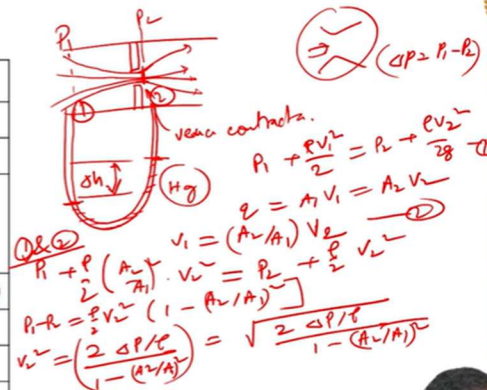 P₁ P₂
① ②
vena contracta.
Δh
Hg
(ΔP = P₁-P₂)
P₁ + ρv₁²/2 = P₂ + ρv₂²/2g
q = A₁V₁ = A₂V₂
V₁ = (A₂/A₁) V₂ — ②
① & ②
P₁ + ρ/2 (A₂/A₁)² . V₂² = P₂ + ρ/2 V₂²
P₁-P₂ = ρ/2 V₂² (1 - (A₂/A₁)²]
V₂² = (2 ΔP/ρ / 1-(A₂/A₁)²) = √(2 ΔP/ρ / 1-(A₂/A₁)²)